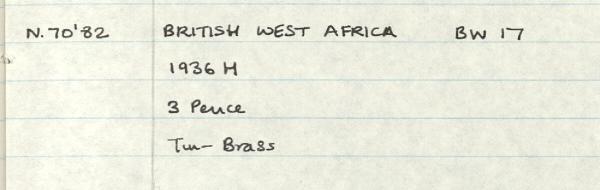 N.70'82 BRITISH WEST AFRICA BW 17
1936 H
3 Pence
Tin-Brass